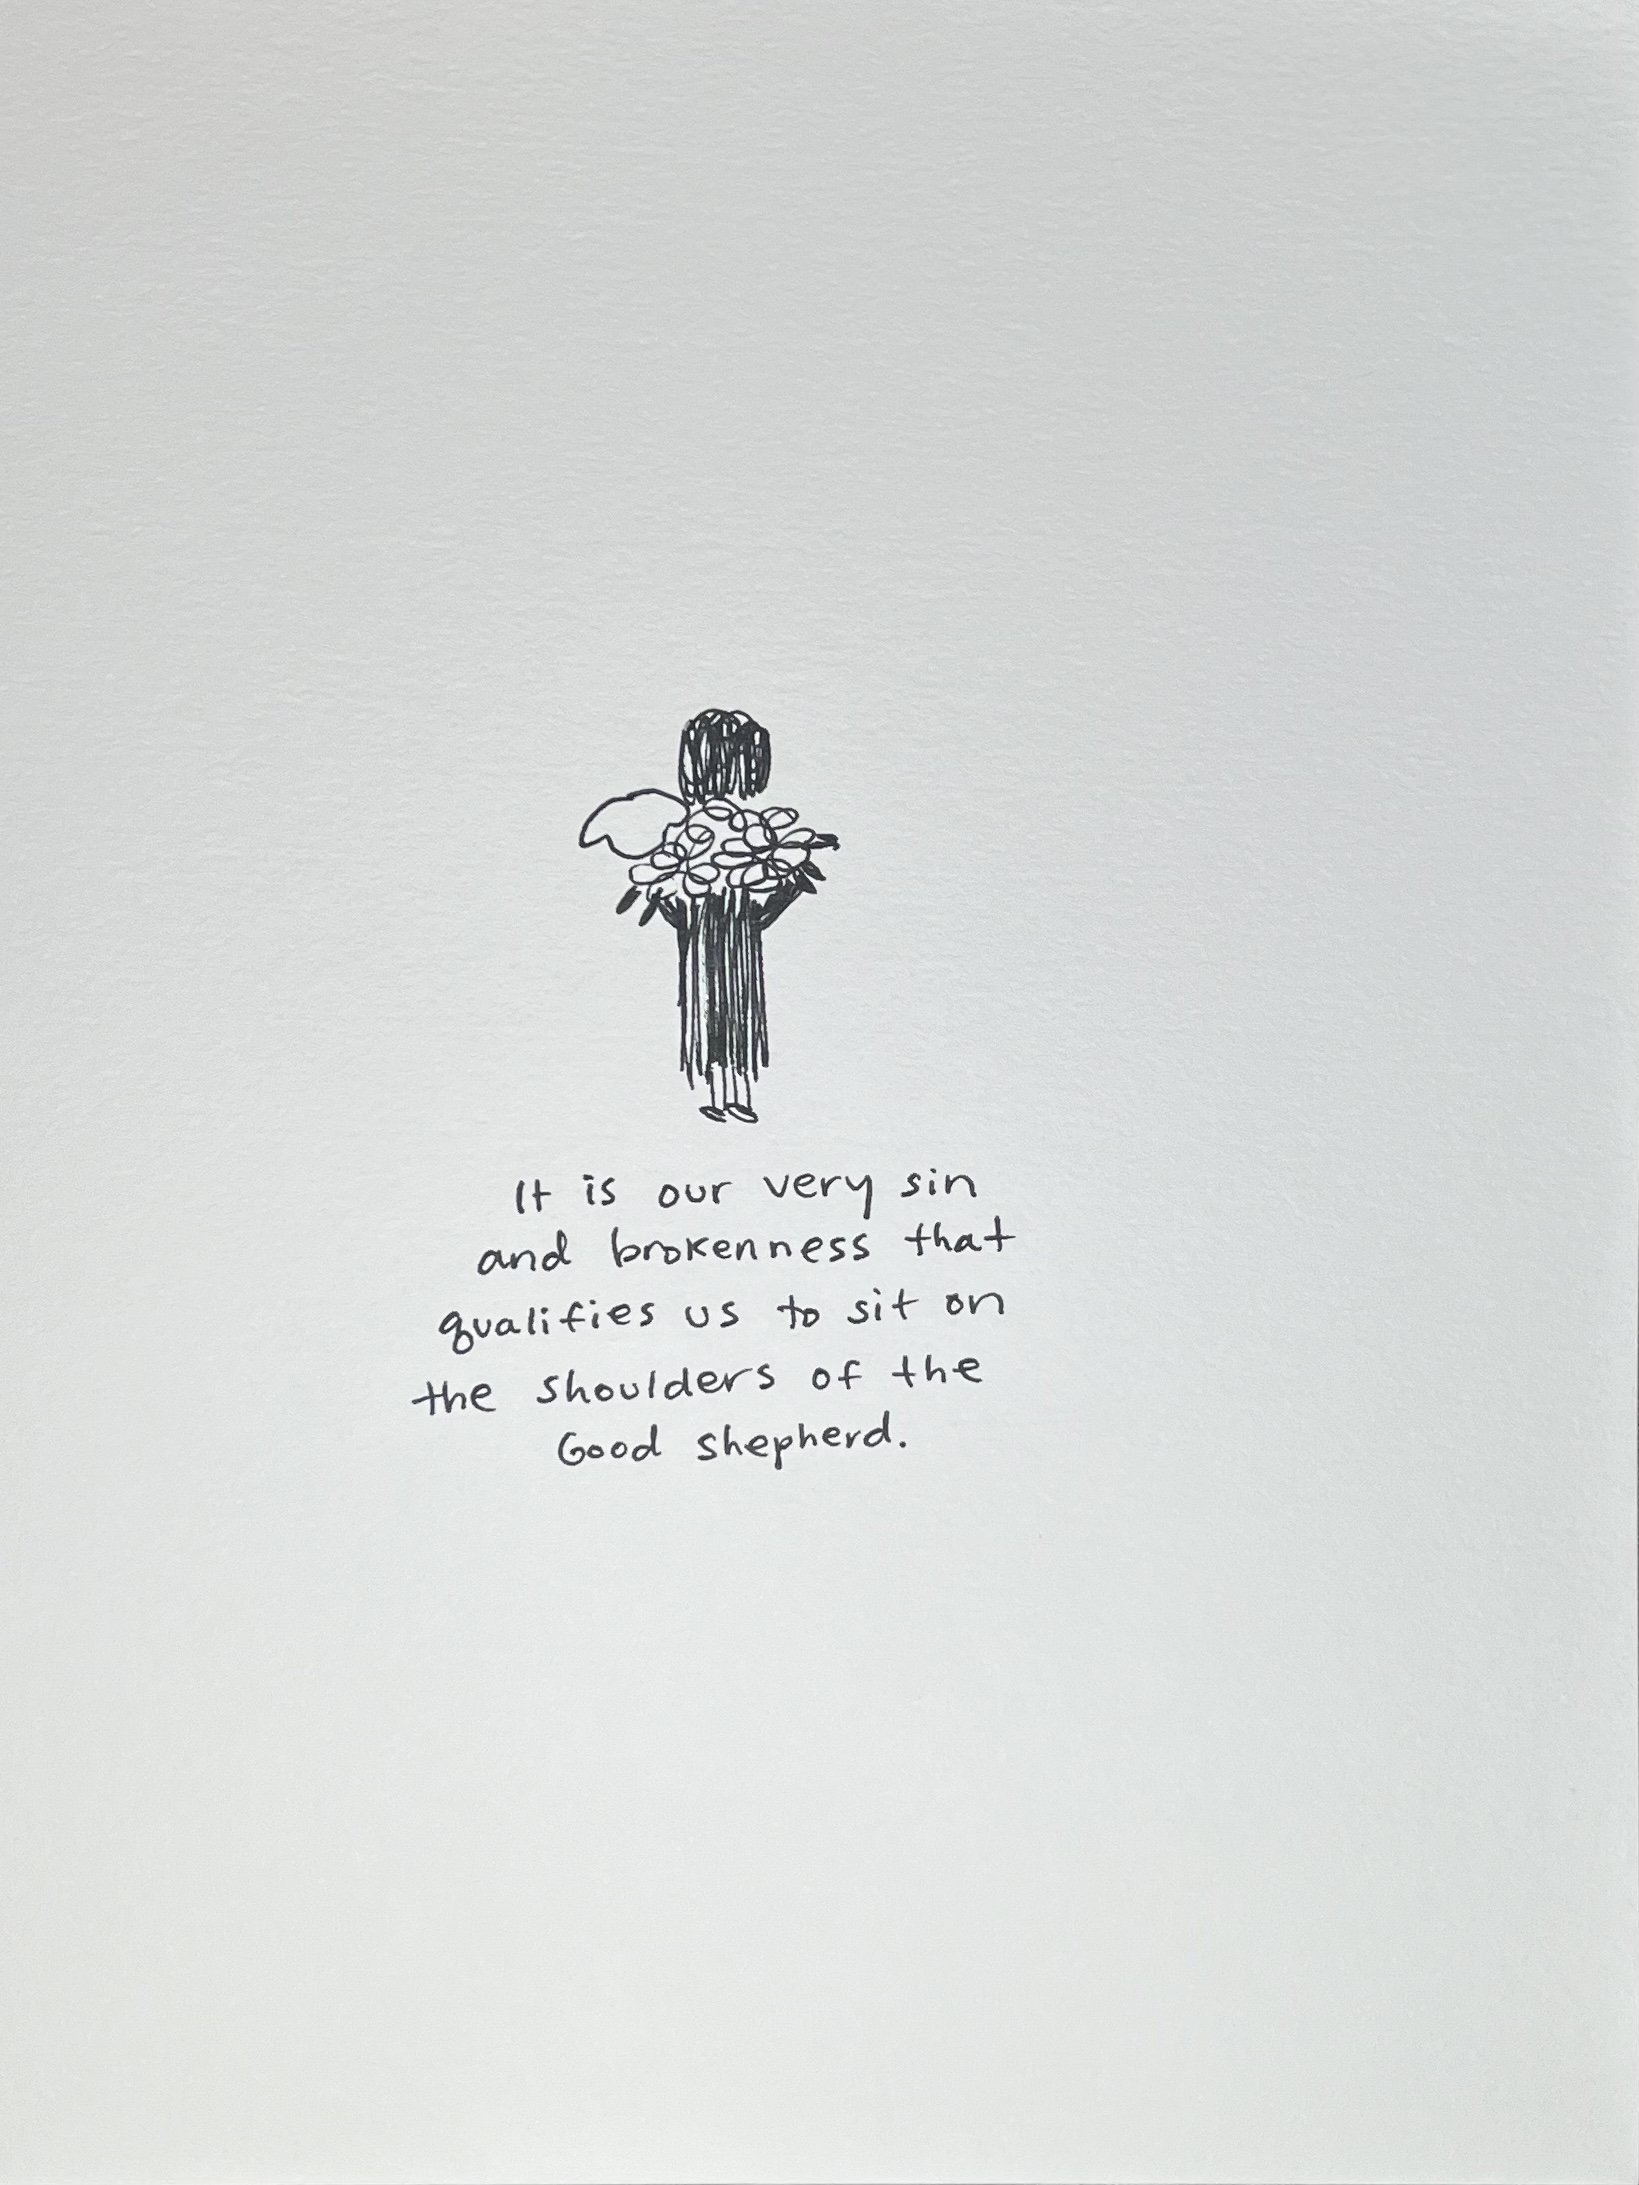 It is our very sin
and brokenness that
qualifies us to sit on
the shoulders of the
Good shepherd.